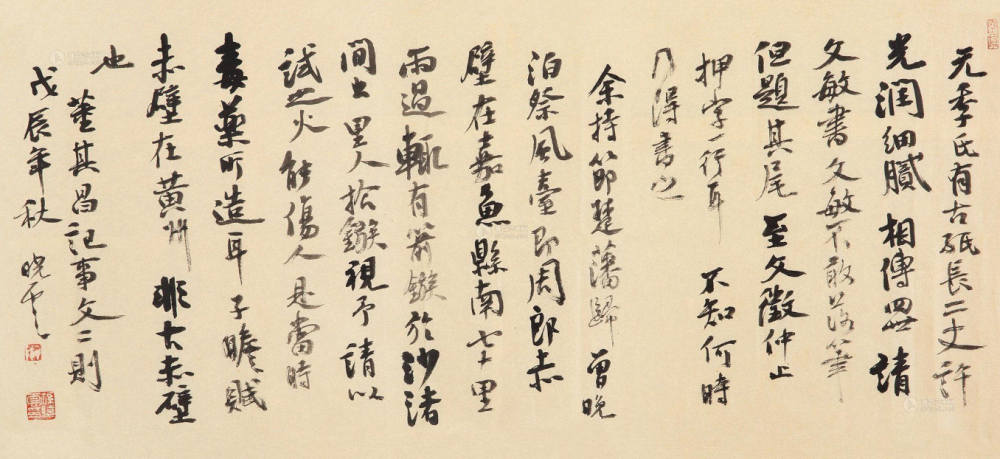 元季氏有古纸長二丈許
光潤細膩 相傳四世請
文敏書文敏不敢落筆
但題其尾 至文徵仲止
押字一行耳 不知何時
乃得書之
余持節楚藩歸 曾晚
泊祭風臺即周郎赤
壁在嘉魚縣南七十里
雨過輒有箭鏃於沙渚
間出里人拾鏃視予 請以
試之火能傷人是當時
毒藥所造耳子瞻賦
赤壁在黄州 非古赤壁
也
董其昌記事文二則
戊辰年秋 曉雲